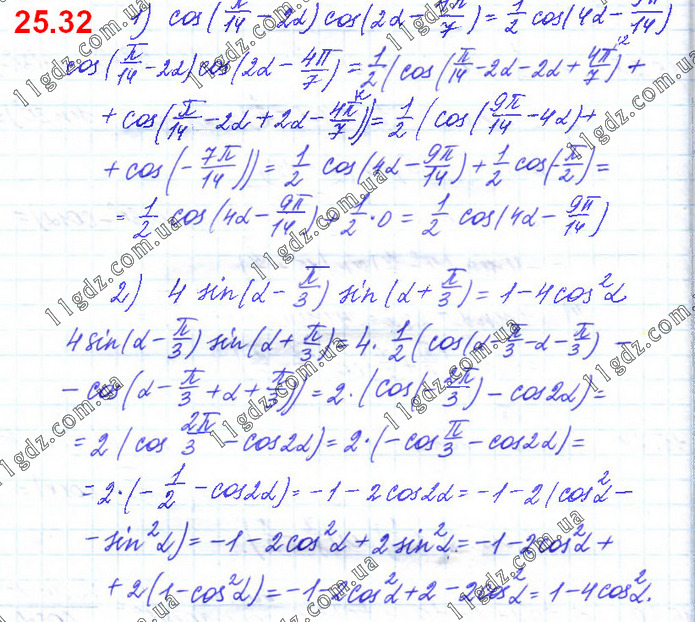 25.32
1) cos(π/14 - 2α) cos(2α - 4π/7) = 1/2 cos(4α - 9π/14)
cos(π/14 - 2α) cos(2α - 4π/7) = 1/2 (cos(π/14 - 2α - 2α + 4π/7) +
+ cos(π/14 - 2α + 2α - 4π/7)) = 1/2 (cos(9π/14 - 4α) +
+ cos(-7π/14)) = 1/2 cos(4α - 9π/14) + 1/2 cos(π/2) =
= 1/2 cos(4α - 9π/14) + 1/2 · 0 = 1/2 cos(4α - 9π/14)
2) 4 sin(α - π/3) sin(α + π/3) = 1 - 4cos²α
4 sin(α - π/3) sin(α + π/3) = 4 · 1/2 (cos(α - π/3 - α - π/3) -
- cos(α - π/3 + α + π/3)) = 2 · (cos(-2π/3) - cos2α) =
= 2 (cos 2π/3 - cos2α) = 2 · (-cos π/3 - cos2α) =
= 2 · (-1/2 - cos2α) = -1 - 2cos2α = -1 - 2(cos²α -
- sin²α) = -1 - 2cos²α + 2sin²α = -1 - 2cos²α +
+ 2(1 - cos²α) = -1 - 2cos²α + 2 - 2cos²α = 1 - 4cos²α.
11gdz.com.ua